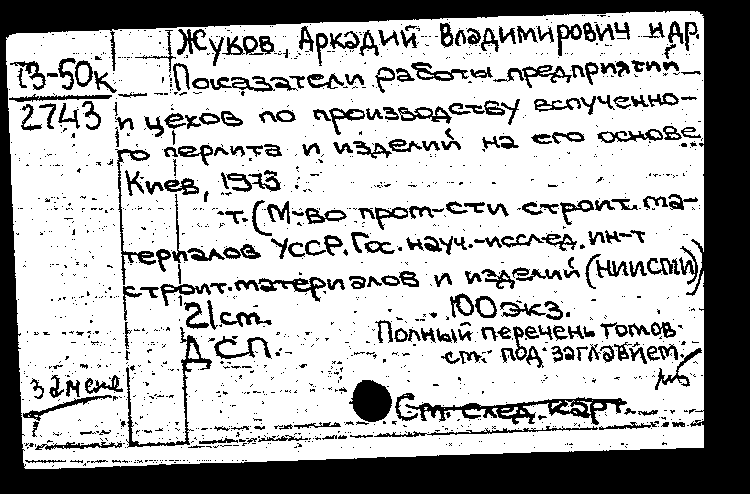 Жуков, Аркадий Владимирович и др.
73-50к
2743
Показатели работы предприятий
и цехов по производству вспученно-
го перлита и изделий на его основе...
Киев, 1973
т. (М-во пром-сти строит. ма-
териалов УССР. Гос. науч.-исслед. ин-т
строит. материалов и изделий (НИИСМИ))
21 ст. 100 экз.
ДСП. Полный перечень томов
см. под заглавием.
замене
См. след. карт.